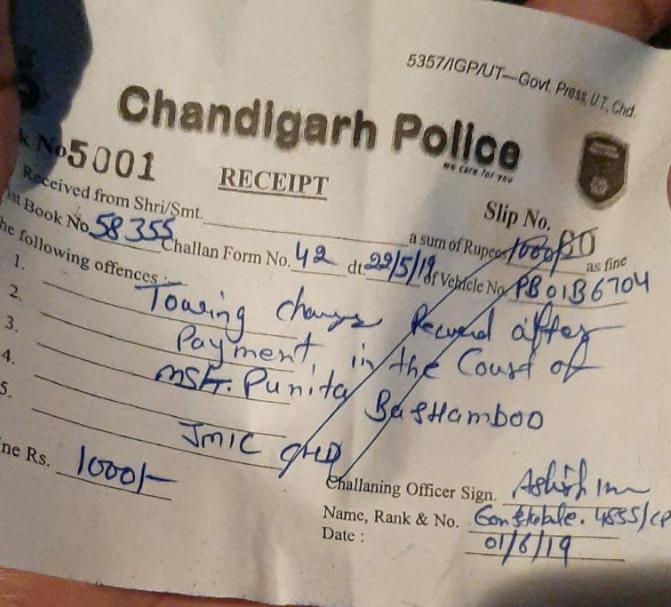 5357/IGP/UT—Govt. Press, U.T., Chd.
Chandigarh Police
we care for you
k No 5001
RECEIPT
Slip No. 80
Received from Shri/Smt. a sum of Rupees 1000/- as fine
Book No. 58355 Challan Form No. 42 dt. 22/5/19 of Vehicle No. PB01B6704
he following offences :
1.
2. Towing charge Received after
3. Payment, in the Court of
4. Punita Bashamboo
5. JMIC CHD
ine Rs. 1000/-
Challaning Officer Sign. Ashish
Name, Rank & No. Constable. 4855/CP
Date : 01/6/19